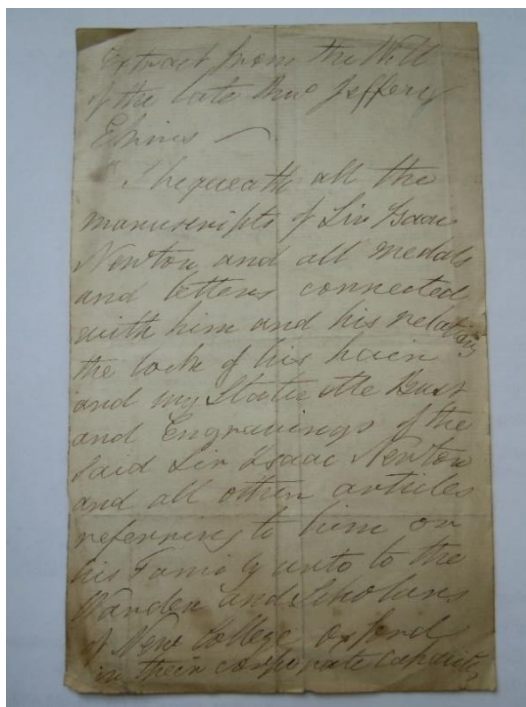 Extract from the Will
of the late Revd Jeffery
Ekins —
"I bequeath all the
manuscripts of Sir Isaac
Newton and all medals
and letters connected
with him and his relations
the lock of his hair
and my Statuette Bust
and Engravings of the
said Sir Isaac Newton
and all other articles
referring to him or
his Family unto to the
Warden and Scholars
of New College Oxford
in their corporate capacity